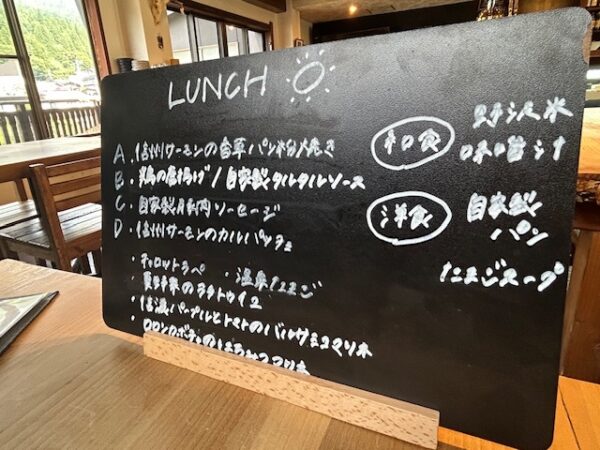 LUNCH
A. 信州サーモンの香草パン粉焼き
B. 鶏の唐揚げ / 自家製タルタルソース
C. 自家製豚肉ソーセージ
D. 信州サーモンのカルパッチョ
・キャロットラペ ・温泉たまご
・夏野菜のラタトゥイユ
・信濃パープルとトマトのバルサミコマリネ
・ロロンカボチャのはちみつマリネ
和食
野沢米
味噌汁
洋食
自家製
パン
たまごスープ